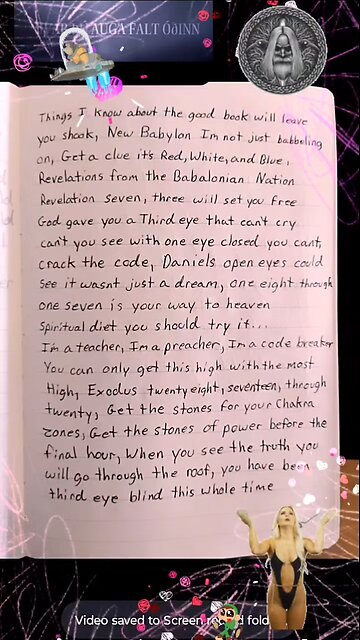 AUGA FALT ÓðINN
Things I know about the good book will leave
you shook, New Babylon Im not just babbeling
on, Get a clue it's Red, White, and Blue,
Revelations from the Babalonian Nation
Revelation seven, three will set you free
God gave you a Third eye that can't cry
can't you see with one eye closed you cant,
crack the code, Daniels open eyes could
see it wasnt just a dream, one eight through
one seven is your way to heaven
Spiritual diet you should try it...
I'm a teacher, I'm a preacher, I'm a code breaker
You can only get this high with the most
High, Exodus twenty eight, seventeen, through
twenty, Get the stones for your Chakra
zones, Get the stones of power before the
final hour, When you see the truth you
will go through the roof, you have been
third eye blind this whole time
Video saved to Screen fold